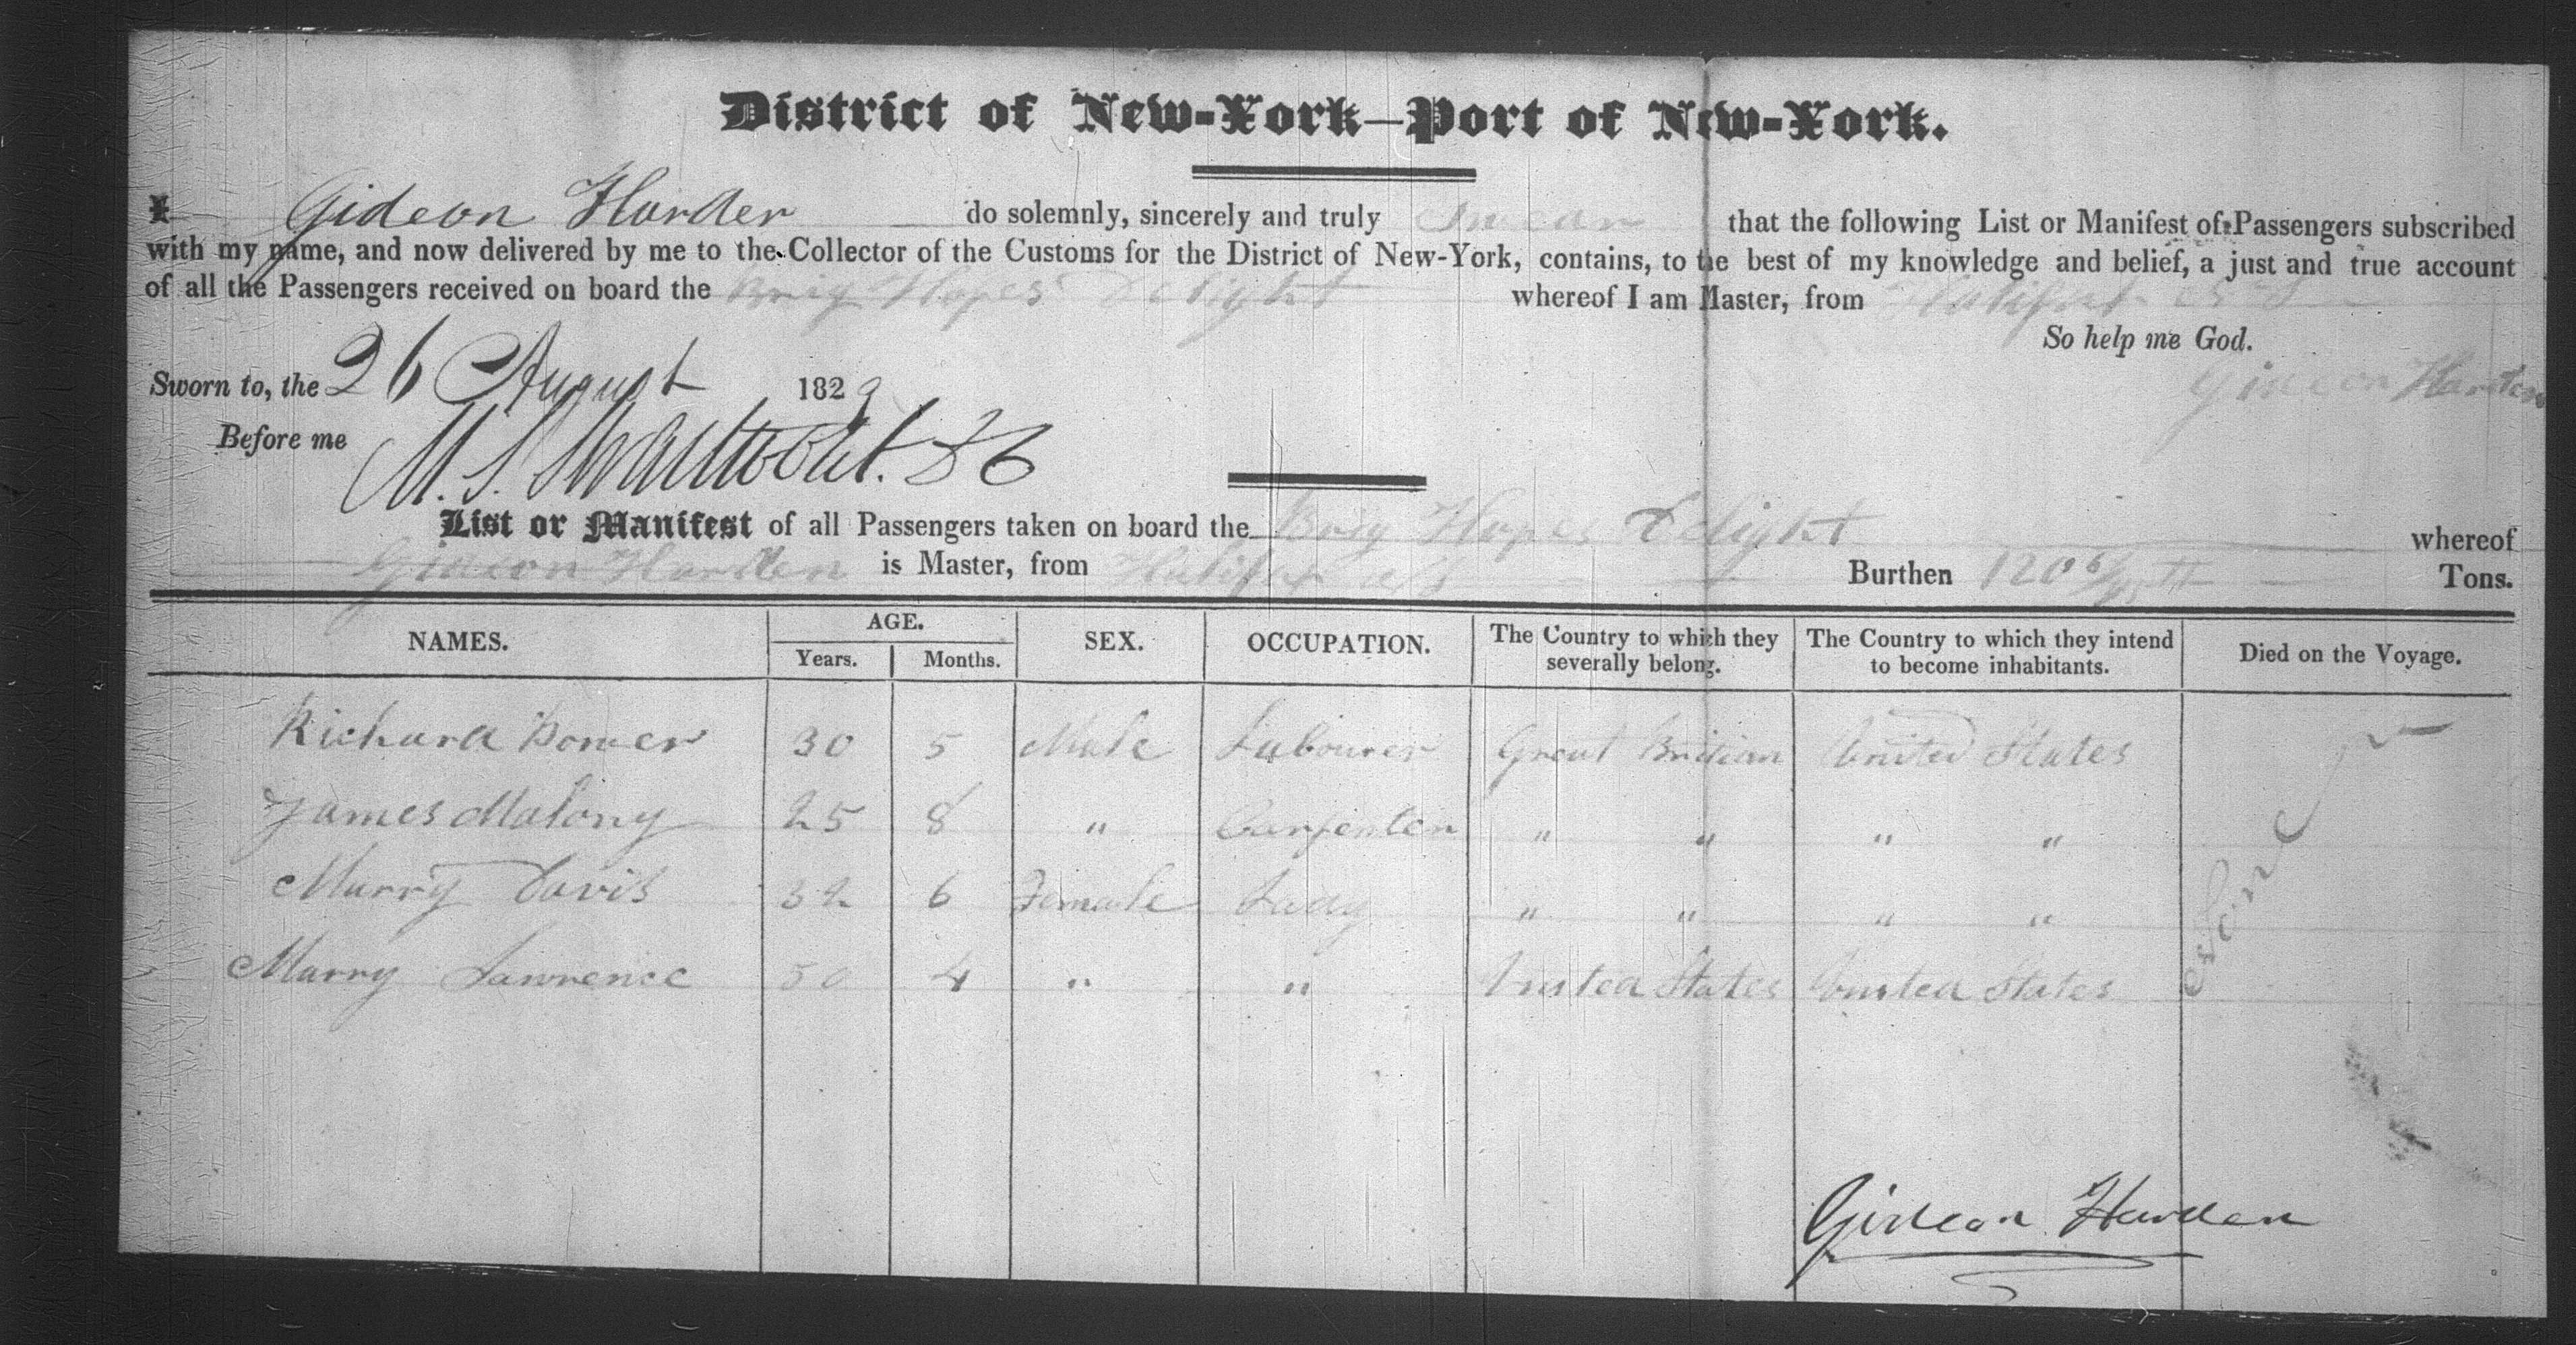 District of New-York—Port of New-York.
I Gideon Harden do solemnly, sincerely and truly Swear that the following List or Manifest of Passengers subscribed
with my name, and now delivered by me to the Collector of the Customs for the District of New-York, contains, to the best of my knowledge and belief, a just and true account
of all the Passengers received on board the Brig Hopes Delight whereof I am Master, from Halifax
So help me God.
Gideon Harden
Sworn to, the 26 August 1829
Before me M. S. Swartwout
List or Manifest of all Passengers taken on board the Brig Hopes Delight whereof
Gideon Harden is Master, from Halifax Burthen 120 Tons.
NAMES. AGE. SEX. OCCUPATION. The Country to which they severally belong. The Country to which they intend to become inhabitants. Died on the Voyage.
Years. Months.
Richard Bower 30 5 Male Labourer Great Britian United States
James Malony 25 8 " Carpenter " " " "
Marry Davis 32 6 Female Lady " " " "
Marry Lawrence 50 4 " " United States United States
None
Gideon Harden